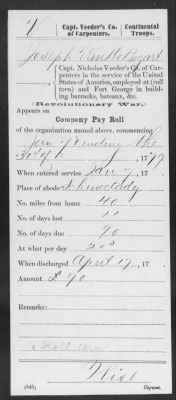 Capt. Veeder's Co. of Carpenters.
Continental Troops.
Joseph
(Capt. Nicholas Veeder's Co. of Carpenters in the service of the United States of America, employed at (roll torn) and Fort George in building barracks, bateaux, &c.
Revolutionary War.)
Appears on
Company Pay Roll
of the organization named above, commencing
Jan 7 & ending the
31st of 1779
When entered service Jan 7, 17
Place of abode
No. miles from home 40
No. of days lost 11
No. of days due 90
At what per day 20s
When discharged April 17, 17
Amount £ 90
Remarks:
Roll torn
(645)
Copyist.